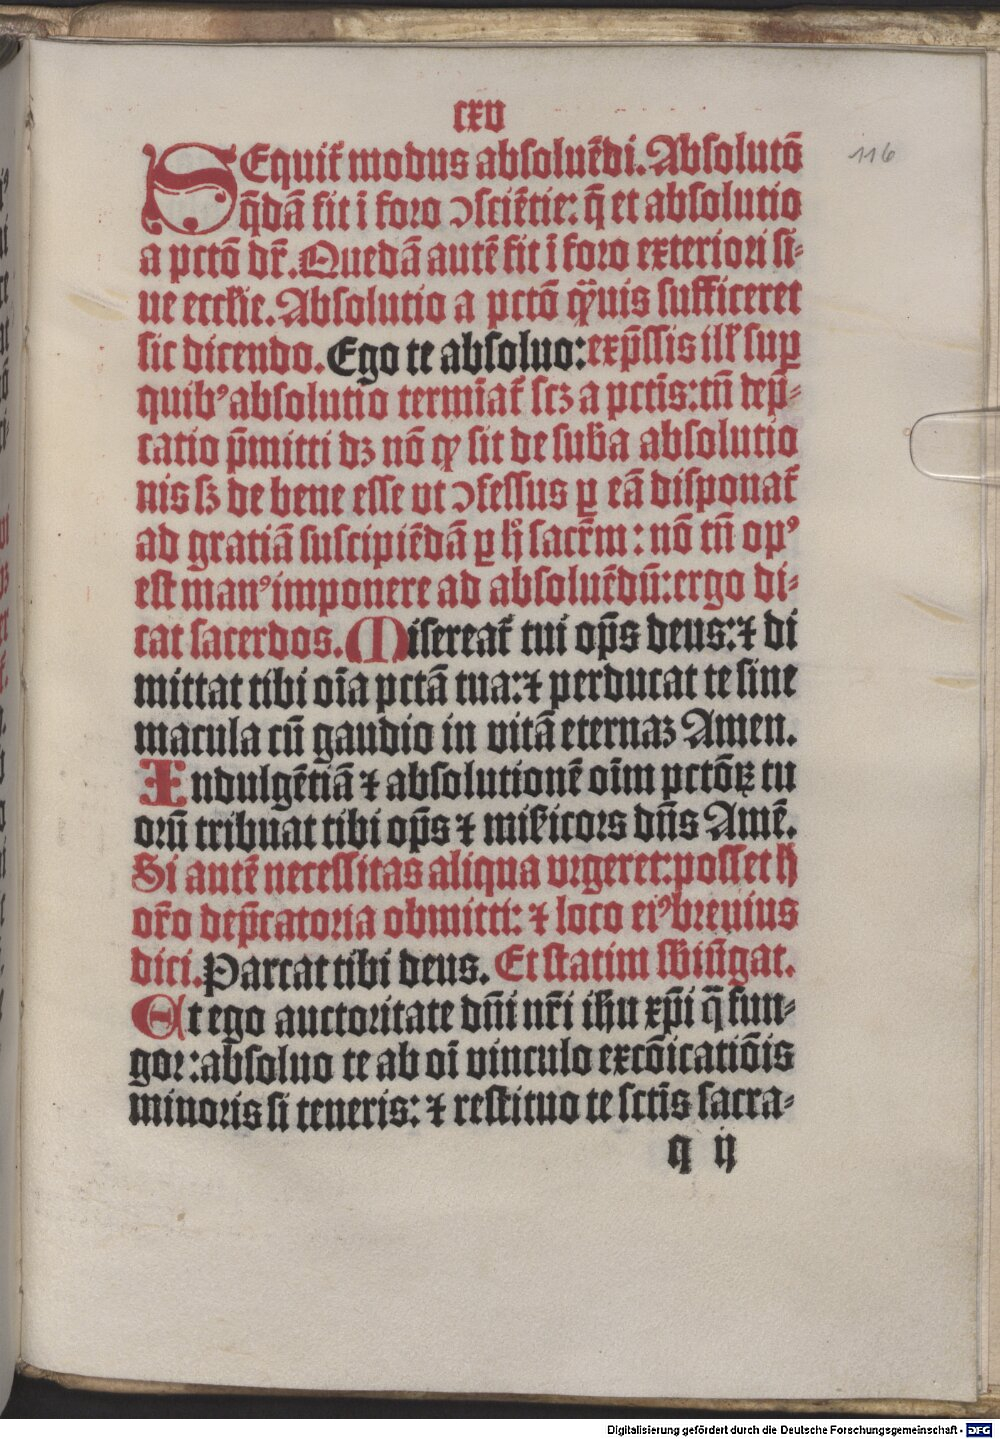 cxv
116
SEquit᷑ modus absoluēdi. Absolutō
q̄dā fit ī foro ↄsciētie: q̄ et absolutio
a pctō dr̄. Quedā autē fit ī foro exteriori si-
ue eccl̄ie. Absolutio a pctō qͣuis sufficeret
sic dicendo. Ego te absoluo: exp̄ssis ill̕ suꝑ
quibꝰ absolutio termīat᷑ scꝫ a pctīs: tn̄ dep̄-
catio p̄mitti dꝫ nō ꝙ sit de sub̄a absolutio
nis sꝫ de bene esse vt ↄfessus ꝑ eā disponat᷑
ad gratiā suscipiēdā ꝑ h̄ sacr̄m: nō tn̄ opꝰ
est manꝰ imponere ad absoluēdū: ergo di-
cat sacerdos. Misereat᷑ tui op̄s deus: ⁊ di
mittat tibi oīa pctā tua: ⁊ perducat te sine
macula cū gaudio in vitā eternaꝫ Amen.
Indulgētiā ⁊ absolutionē oīm pctōꝝ tu
orū tribuat tibi op̄s ⁊ mis̄icors dn̄s Amē.
Si autē necessitas aliqua vrgeret: posset h̄
or̄o dep̄catoria obmitti: ⁊ loco eiꝰ breuius
dici. Parcat tibi deus. Et statim sb̄iūgat.
Et ego auctoritate dn̄i nr̄i ih̄u xp̄i q̄ fun-
gor: absoluo te ab oī vinculo excōicatiōis
minoris si teneris: ⁊ restituo te sctīs sacra-
q ij
Digitalisierung gefördert durch die Deutsche Forschungsgemeinschaft - DFG